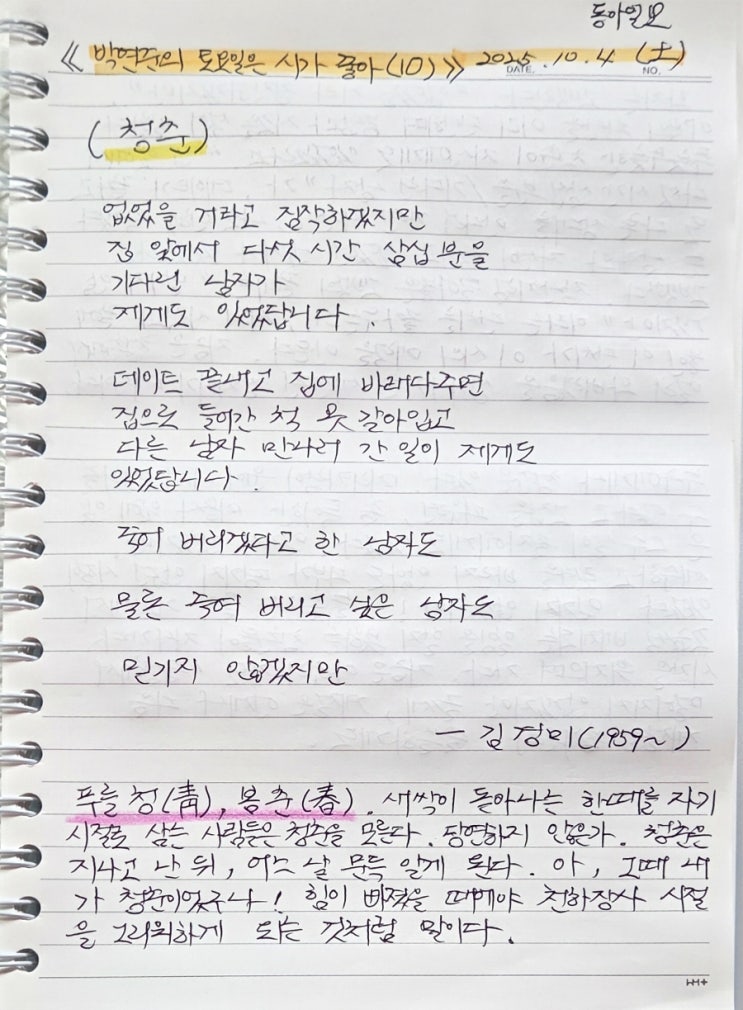 동아일보
《박연준의 토요일은 시가 좋아(10)》 2025.10.4 (土)
DATE. NO.
(청춘)
없었을 거라고 짐작하겠지만
집 앞에서 다섯 시간 삼십 분을
기다린 남자가
제게도 있었답니다.
데이트 끝내고 집에 바래다주면
집으로 들어간 척 옷 갈아입고
다른 남자 만나러 간 일이 제게도
있었답니다.
죽어 버리겠다고 한 남자도
물론 죽여 버리고 싶은 남자도
믿기지 않겠지만
— 김경미(1959~)
푸를 청(靑), 봄 춘(春). 새싹이 돋아나는 한때를 자기
시절로 삼는 사람들은 청춘을 모른다. 당연하지 않은가. 청춘은
지나고 난 뒤, 어느 날 문득 알게 된다. 아, 그때 내
가 청춘이었구나! 힘이 빠졌을 때에야 천하장사 시절
을 그리워하게 되는 것처럼 말이다.